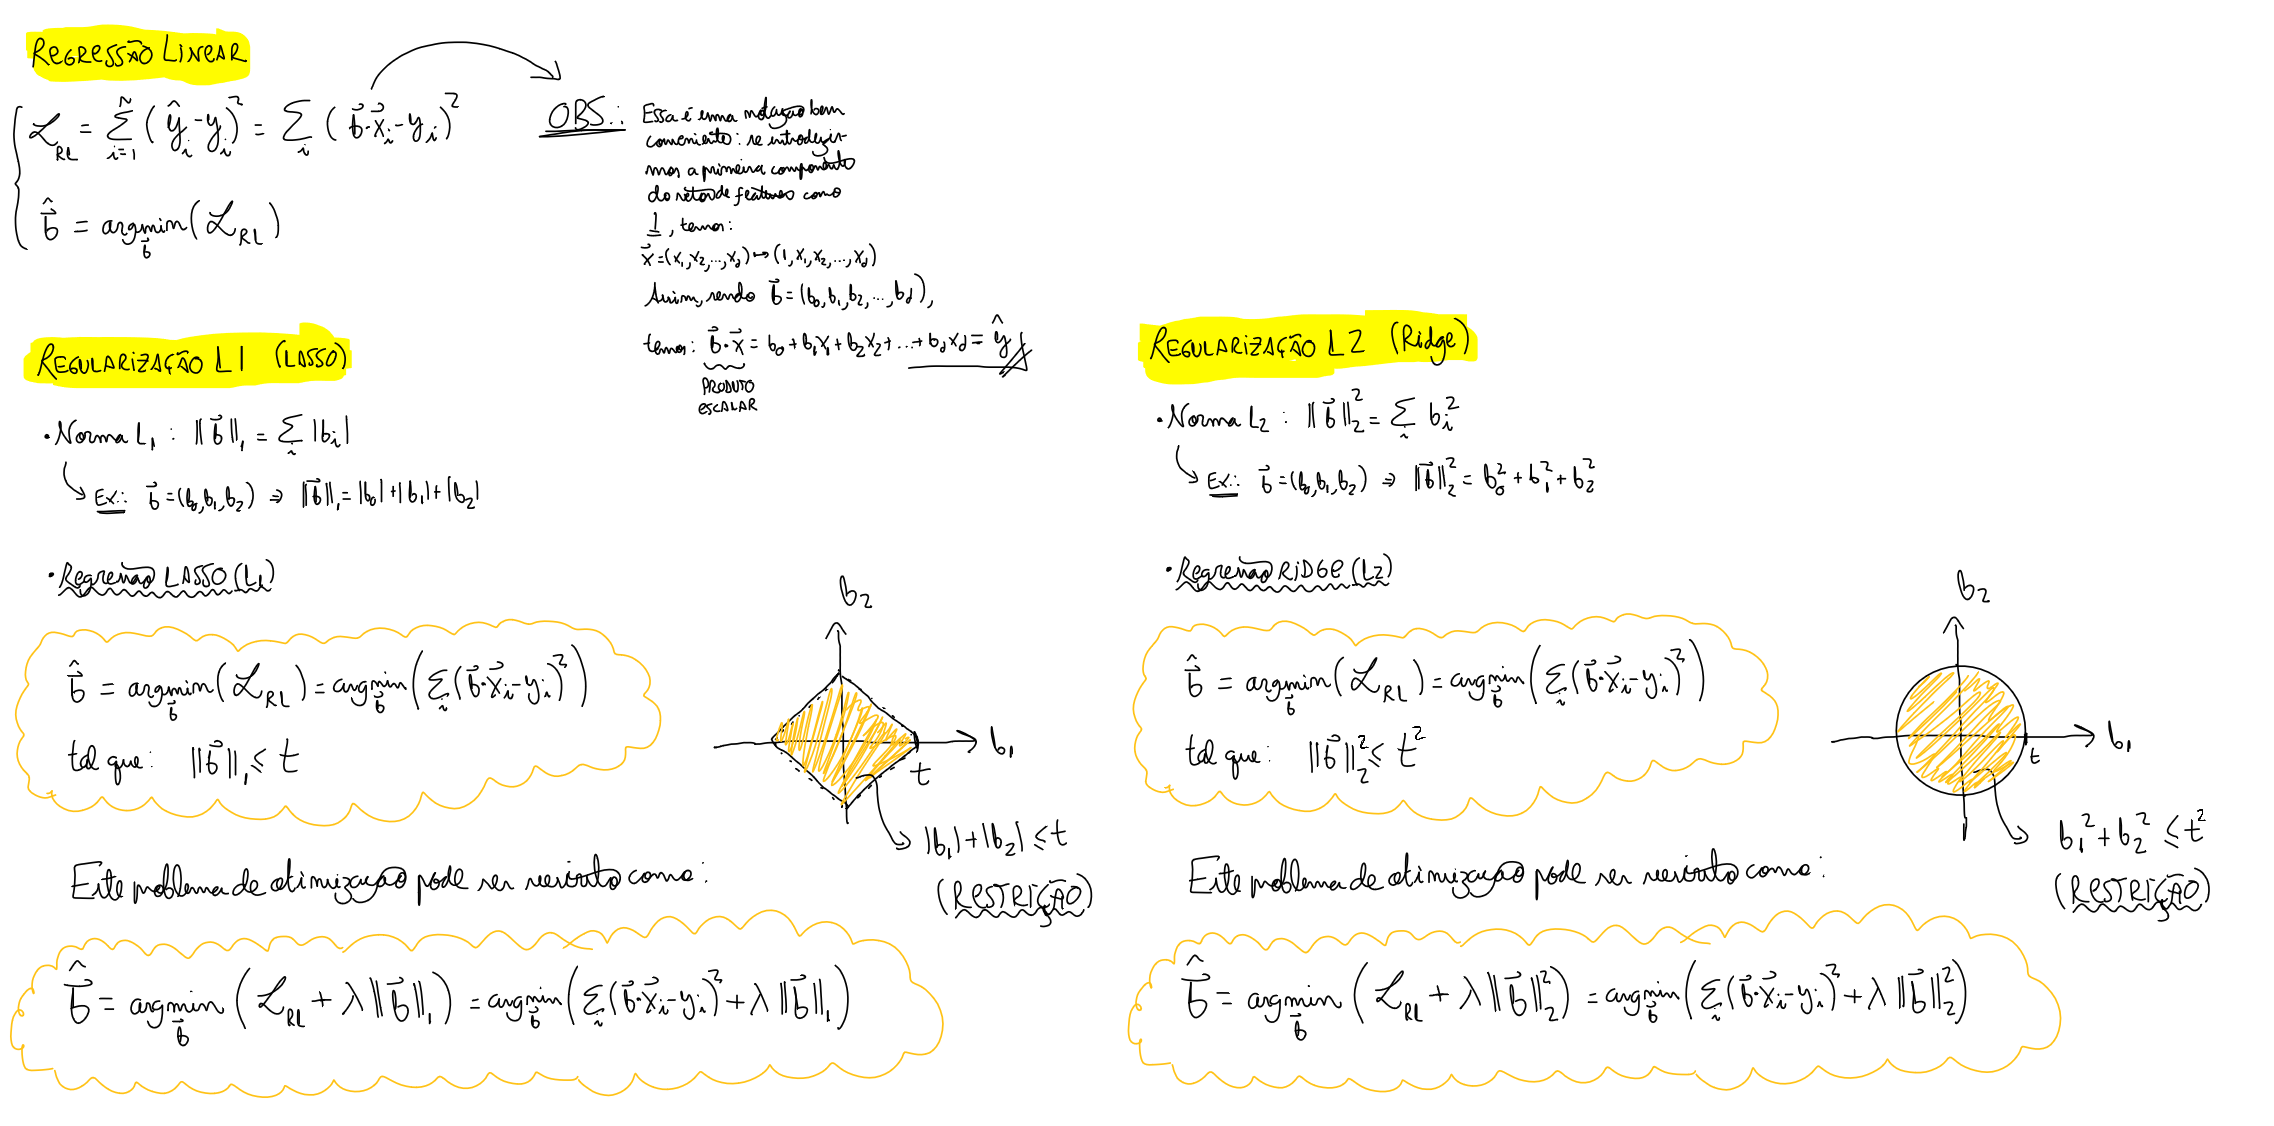 REGRESSÃO LINEAR
ℒ_RL = Σ_{i=1}^{N} (ŷ_i - y_i)² = Σ_i (b⃗·x⃗_i - y_i)²
b⃗̂ = argmin_{b⃗} (ℒ_RL)
OBS.: Essa é uma notação bem
conveniente: se introduzir-
mos a primeira componente
do vetor de features como
1, temos:
x⃗ = (x₁, x₂, ..., x_d) ↦ (1, x₁, x₂, ..., x_d)
Assim, sendo b⃗ = (b₀, b₁, b₂, ..., b_d),
temos: b⃗·x⃗ = b₀ + b₁x₁ + b₂x₂ + ... + b_d x_d = ŷ
PRODUTO
ESCALAR
REGULARIZAÇÃO L1 (LASSO)
• Norma L₁ : ‖b⃗‖₁ = Σ_i |b_i|
Ex.: b⃗ = (b₀, b₁, b₂) ⇒ ‖b⃗‖₁ = |b₀| + |b₁| + |b₂|
• Regressão LASSO (L1)
b⃗̂ = argmin_{b⃗} (ℒ_RL) = argmin_{b⃗} (Σ_i (b⃗·x⃗_i - y_i)²)
tal que: ‖b⃗‖₁ ≤ t
b₂
b₁
t
|b₁| + |b₂| ≤ t
(RESTRIÇÃO)
Este problema de otimização pode ser reescrito como:
b⃗̂ = argmin_{b⃗} (ℒ_RL + λ‖b⃗‖₁) = argmin_{b⃗} (Σ_i (b⃗·x⃗_i - y_i)² + λ‖b⃗‖₁)
REGULARIZAÇÃO L2 (Ridge)
• Norma L₂ : ‖b⃗‖₂² = Σ_i b_i²
Ex.: b⃗ = (b₀, b₁, b₂) ⇒ ‖b⃗‖₂² = b₀² + b₁² + b₂²
• Regressão RIDGE (L2)
b⃗̂ = argmin_{b⃗} (ℒ_RL) = argmin_{b⃗} (Σ_i (b⃗·x⃗_i - y_i)²)
tal que: ‖b⃗‖₂² ≤ t²
b₂
b₁
t
b₁² + b₂² ≤ t²
(RESTRIÇÃO)
Este problema de otimização pode ser reescrito como:
b⃗̂ = argmin_{b⃗} (ℒ_RL + λ‖b⃗‖₂²) = argmin_{b⃗} (Σ_i (b⃗·x⃗_i - y_i)² + λ‖b⃗‖₂²)